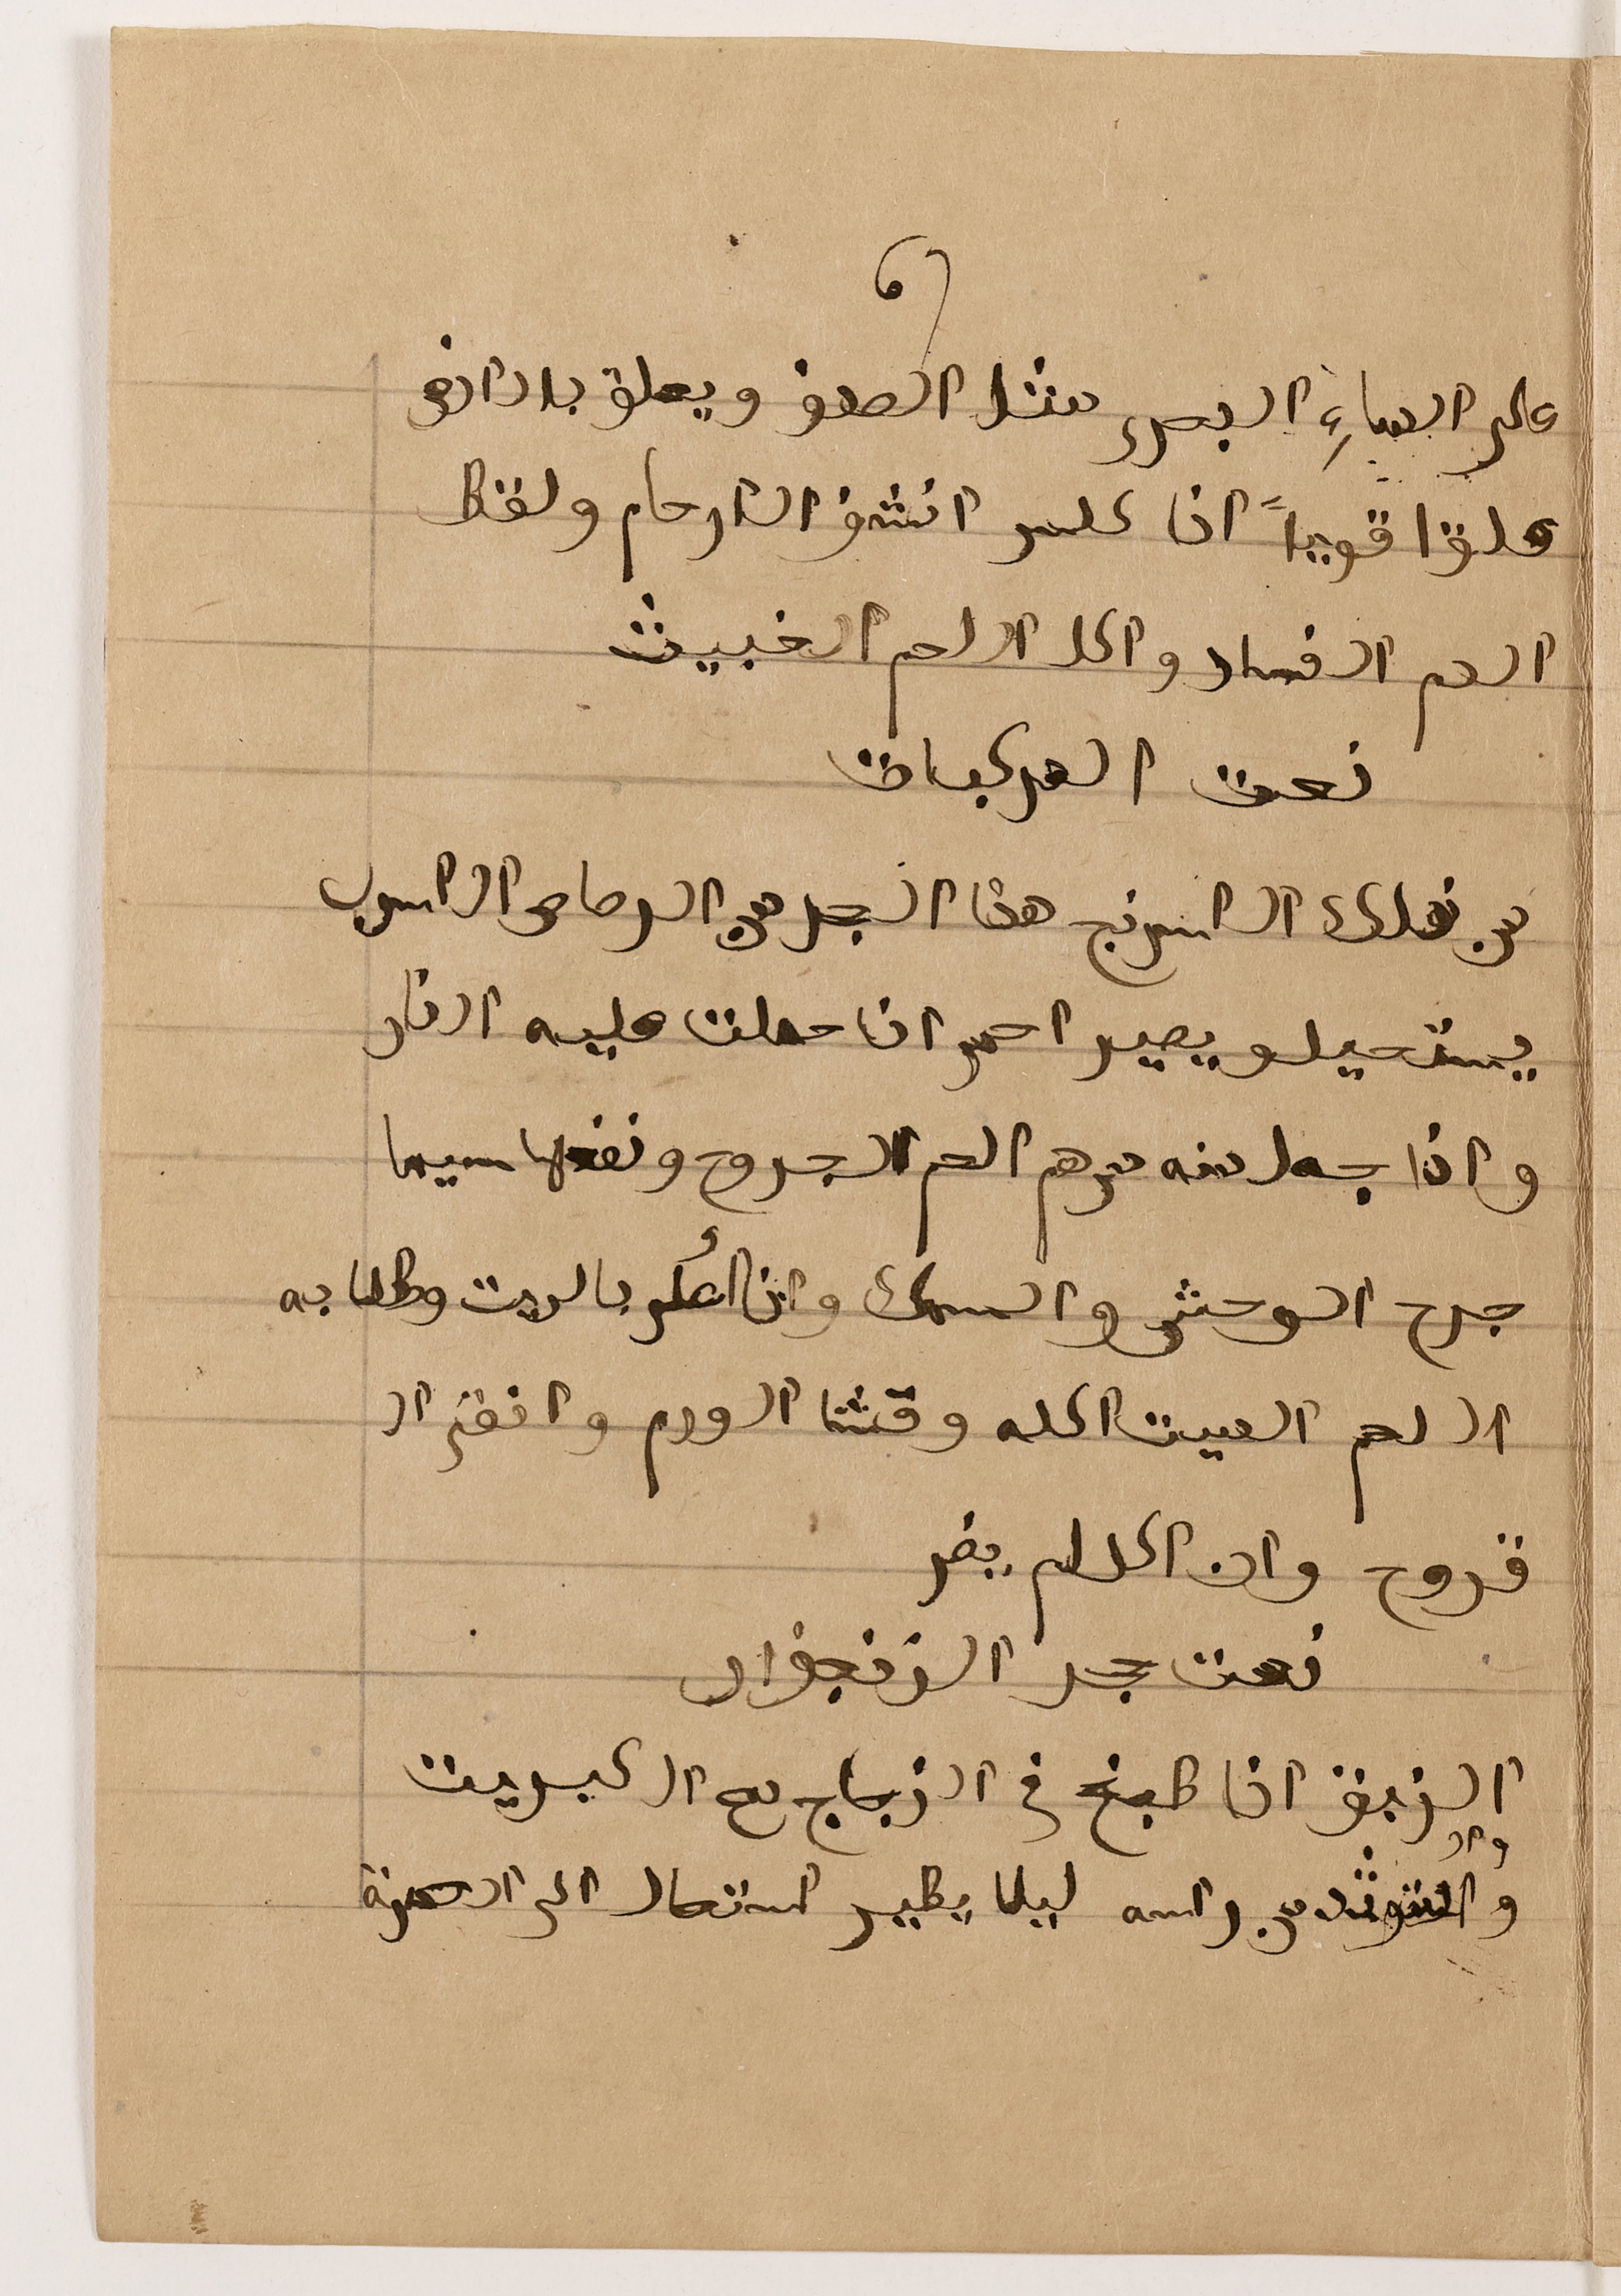 على المياءِ البحرى مثل الصدف ويعلق بالانف
علقا قوياً اذا كلس انشف الارحام ولقط
الدم الفساد واكل اللحم الخبيث
نعت المركبات
من ذلك الاسرنج هذا الحجر من الرصاص الاسرب
يستحيل ويصير احمر اذا حملت عليه النار
واذا جعل منه مرهم الحم الجروح ونفعها سيما
جرح الوحش والسمك واذا بالزيت وطلا به
اللحم الميت اكله وقشا الورم وانفع ال
قروح وان اكل لم يضر
نعت حجر الزنجفر
الزيبق اذا طبخ فى الزجاج مع الكبريت
من راسه ليلا يطير استحال الى الحمرة